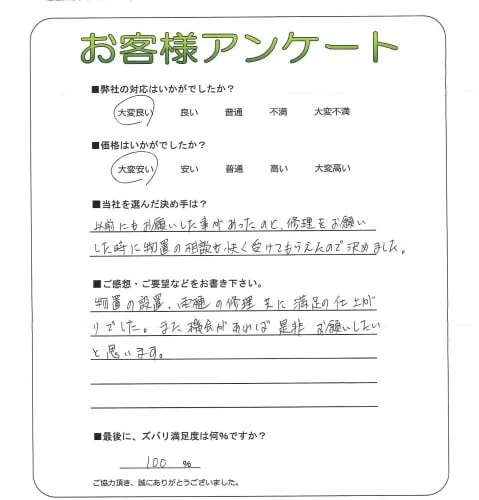 お客様アンケート
■弊社の対応はいかがでしたか?
大変良い 良い 普通 不満 大変不満
■価格はいかがでしたか?
大変安い 安い 普通 高い 大変高い
■当社を選んだ決め手は?
以前にもお願いした事があったのと、修理をお願い
した時に物置の相談も快く受けてもらえたので決めました。
■ご感想・ご要望などをお書き下さい。
物置の設置、雨樋の修理 共に 満足の仕上が
りでした。また機会があれば 是非 お願いしたい
と思います。
■最後に、ズバリ満足度は何%ですか?
100 %
ご協力頂き、誠にありがとうございました。